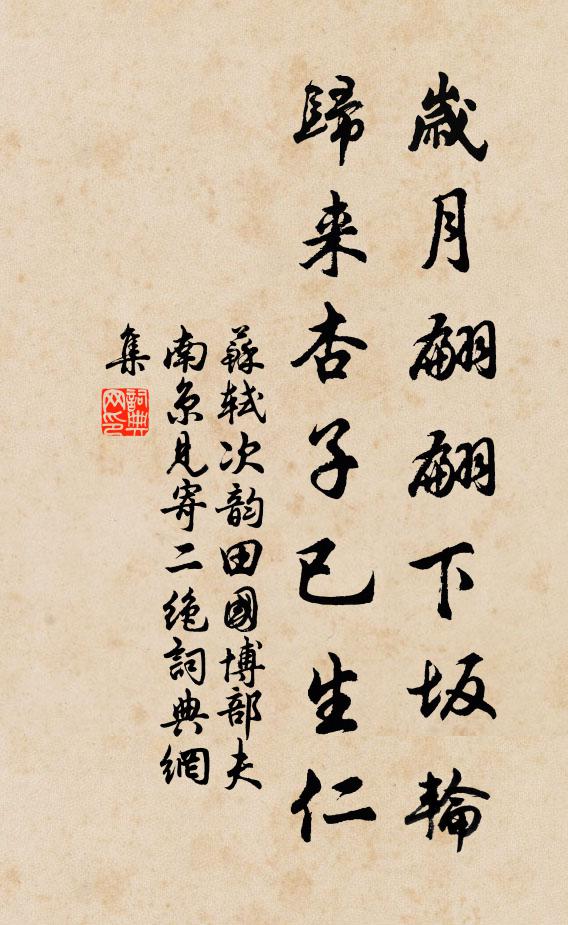 歲月翩翩下坂輪
歸来杏子已生仁
蘇軾次韵田國博部夫
南京見寄二絶詞典網
集
詞典
网印